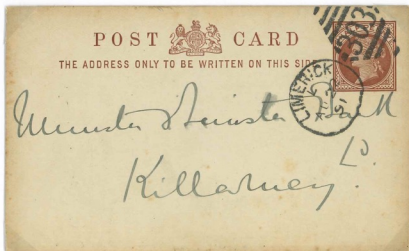 POST CARD
THE ADDRESS ONLY TO BE WRITTEN ON THIS SIDE
303
LIMERICK
Munster & Leinster Bank
Ld.
Killarney